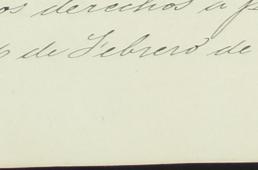 os derechos a p
de Febrero de